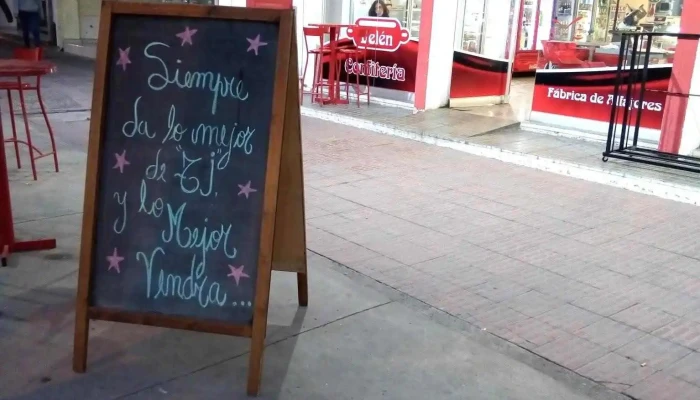 Siempre
da lo mejor
de "Tj",
y lo
Mejor
Vendra...
Belén
Confitería
Fábrica de Alfajores